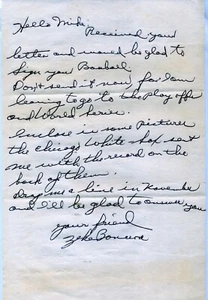 Hello Mike.
Received your
letter and would be glad to
sign your Baseball.
Don't send it now, for I am
leaving to go to the play offs
and World Series.
Enclose in some pictures
the Chicago White Sox sent
me with the record on the
back of them.
drop me a line in November
and I'll be glad to answer you
your friend
Zeke Bonura